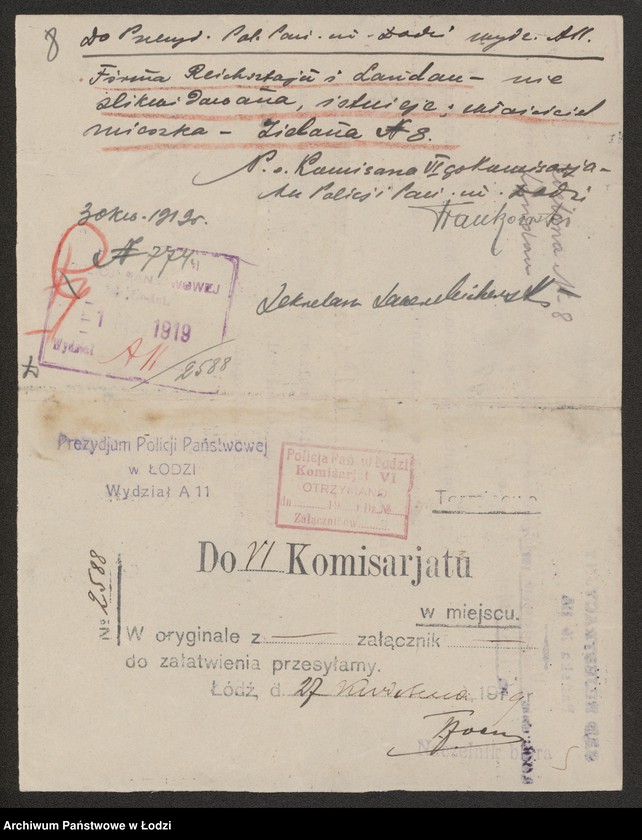 8
Do Prezyd. Pol. Pań. m. Łodzi wydz. A11.
Firma Reichsztajn i Landau – nie
zlikwidowana, istnieje; właściciel
mieszka – Zielona № 8.
P. o. Komisarza VI go Komisarja-
tu Policji Pań. m. Łodzi
№ 774
1919
Wydział A11
2588
Sekretarz
Prezydjum Policji Państwowej
w ŁODZI
Wydział A 11
Policja Pań. m. Łodzi
Komisarjat VI
OTRZYMANO
dn. 19 r. Dz. №
Załączników
Do VI Komisarjatu
№ 2588
w miejscu.
W oryginale z — załącznik —
do załatwienia przesyłamy.
Łódź, d. 27 Kwietnia 1919 r.
Naczelnik biura
Archiwum Państwowe w Łodzi